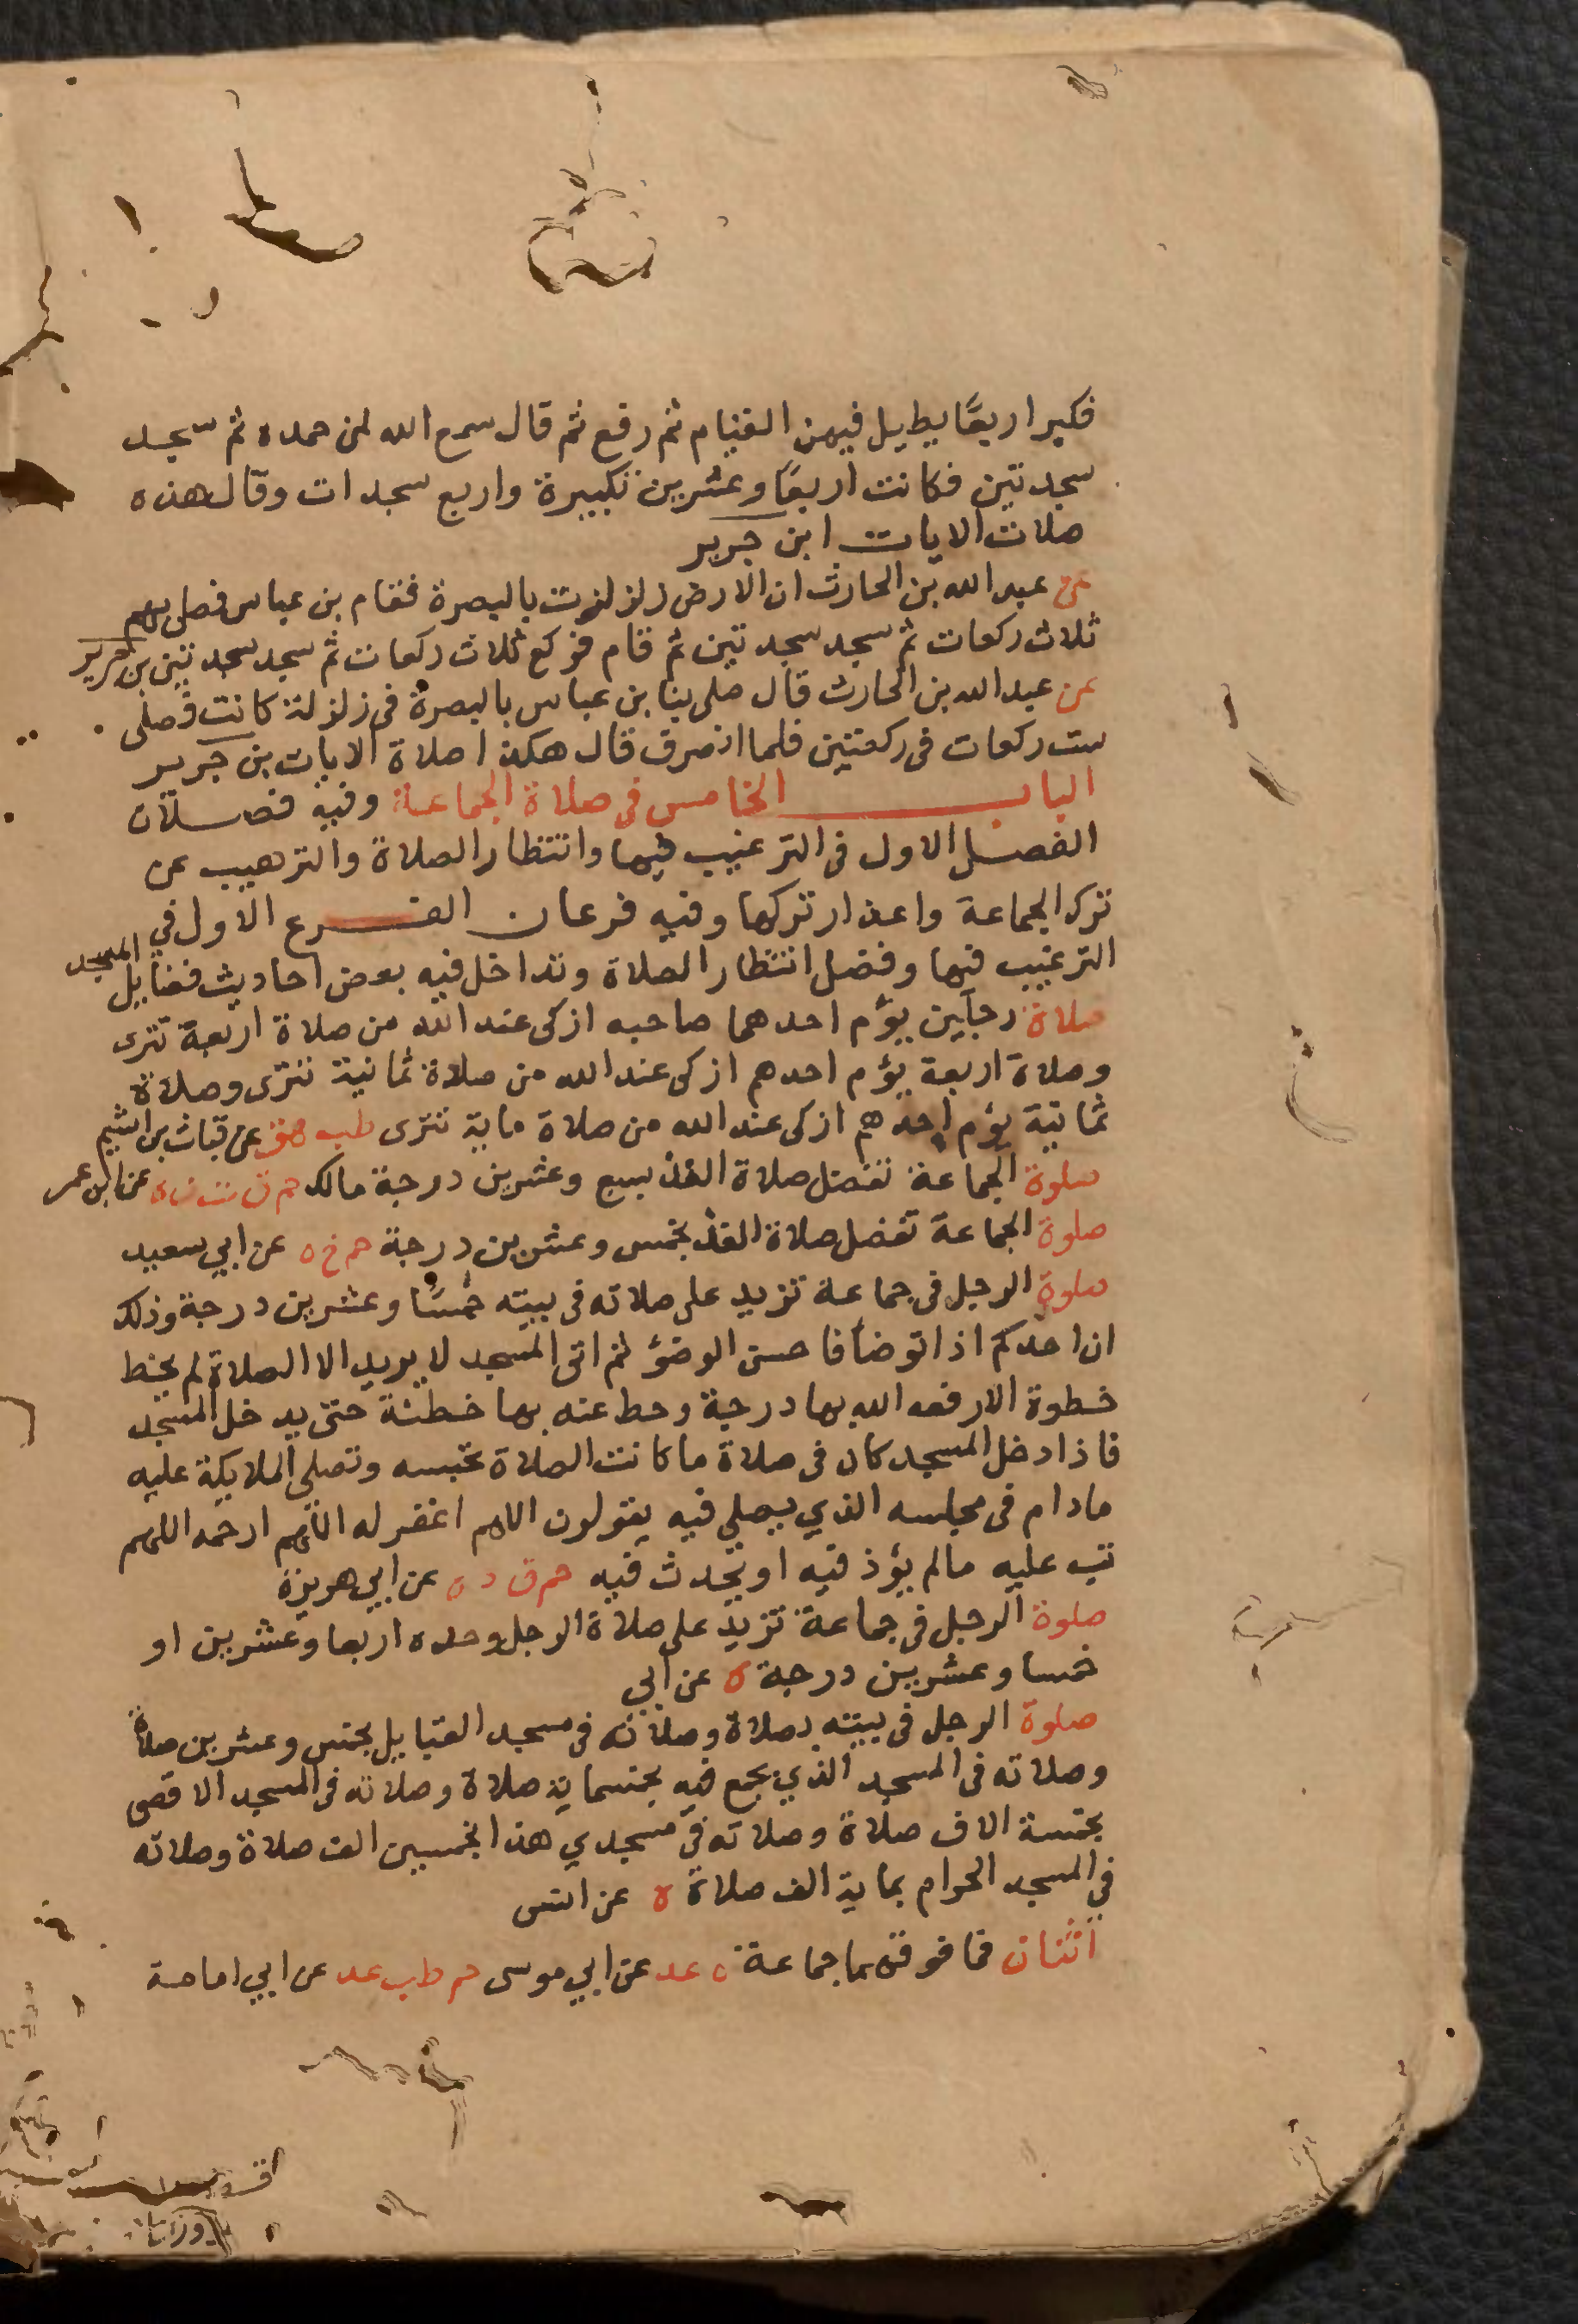 فكبر اربعًا يطيل فيهن القيام ثم رفع ثم قال سمع الله لمن حمده ثم سجد
سجدتين فكانت اربعًا وعشرين تكبيرة واربع سجدات وقال هذه
صلات الايات ابن جرير
عن عبد الله بن الحارث ان الارض زلزلزت بالبصرة فقام بن عباس فصلى بهم
ثلاث ركعات ثم سجد سجدتين ثم قام فركع ثلاث ركعات ثم سجد سجدتين بن جرير
عن عبد الله بن الحارث قال صلى بنا بن عباس بالبصرة فى زلزلة كانت فصلى
ست ركعات فى ركعتين فلما انصرف قال هكذا صلاة الايات بن جرير
الباب الخامس فى صلاة الجماعة وفيه فصلان
الفصل الاول فى الترغيب فيها وانتظار الصلاة والترهيب عن
ترك الجماعة واعذار تركها وفيه فرعان الفرع الاول في
الترغيب فيها وفضل انتظار الصلاة وتداخل فيه بعض احاديث فضايل المسجد
صلاة رجلين يؤم احدهما صاحبه ازكى عند الله من صلاة اربعة تترى
وصلاة اربعة يؤم احدهم ازكى عند الله من صلاة ثمانية تترى وصلاة
ثمانية يؤم احدهم ازكى عند الله من صلاة ماية تترى طب هق عن قباث بن اشيم
صلوة الجماعة تفضل صلاة الفذ بسبع وعشرين درجة مالك حم ق ت ن ه عن ابن عمر
صلوة الجماعة تفضل صلاة الفذ بخمس وعشرين درجة حم خ ه عن ابي سعيد
صلوة الرجل فى جماعة تزيد على صلاته فى بيته خمسًا وعشرين درجة وذلك
ان احدكم اذا توضأ فاحسن الوضؤ ثم اتى المسجد لا يريد الا الصلاة لم يخط
خطوة الا رفعه الله بها درجة وحط عنه بها خطئة حتى يدخل المسجد
فاذا دخل المسجد كان فى صلاة ما كانت الصلاة تحبسه وتصلى الملايكة عليه
مادام فى مجلسه الذي يصلي فيه يقولون اللهم اغفر له اللهم ارحمه اللهم
تب عليه مالم يؤذ فيه او يحدث فيه حم ق د ه عن ابي هريرة
صلوة الرجل فى جماعة تزيد على صلاة الرجل وحده اربعا وعشرين او
خمسا وعشرين درجة ه عن ابي
صلوة الرجل فى بيته بصلاة وصلاته فى مسجد القبايل بخمس وعشرين صلاة
وصلاته فى المسجد الذي يجمع فيه بخمسماية صلاة وصلاته فى المسجد الاقصى
بخمسة الاف صلاة وصلاته فى مسجدي هذا بخمسين الف صلاة وصلاته
في المسجد الحرام بماية الف صلاة ه عن انس
اثنان فما فوقهما جماعة ه عد عن ابي موسى حم طب عد عن ابي امامة